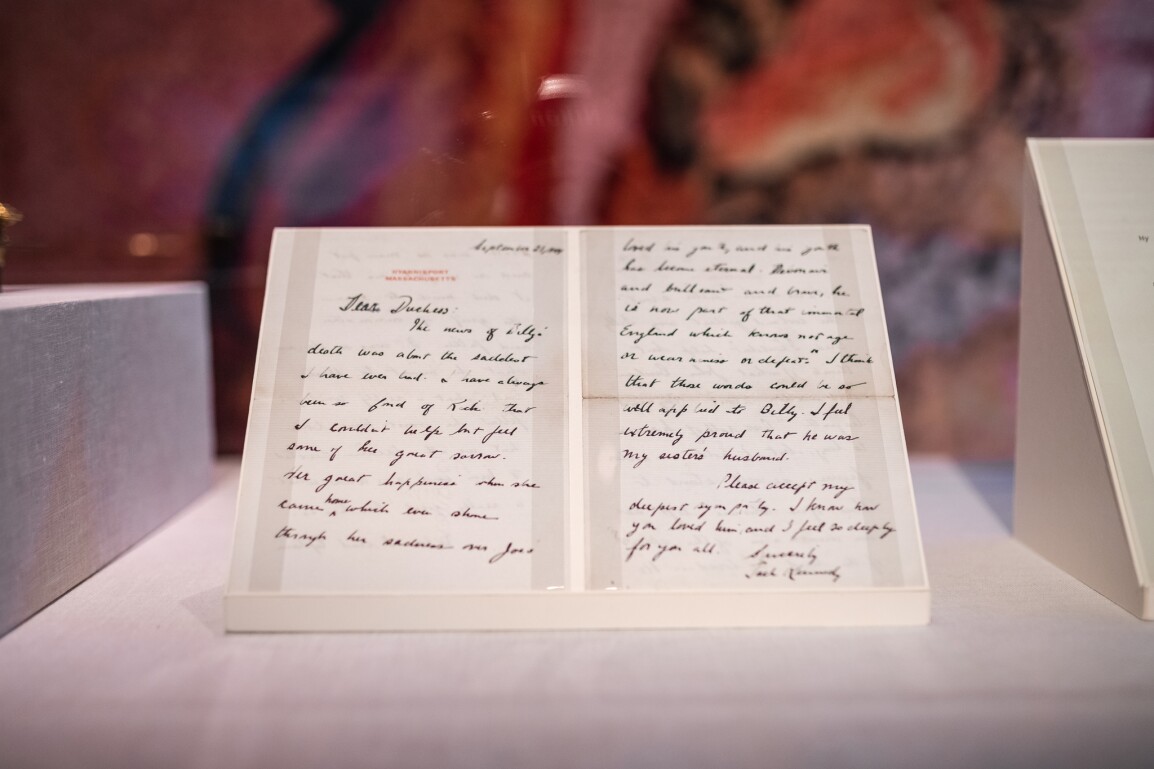 September 21,
HYANNISPORT
MASSACHUSETTS
Dear Duchess:
The news of Billy's
death was about the saddest
I have ever had. I have always
been so fond of Kick that
I couldn't help but feel
some of her great sorrow.
Her great happiness when she
came home which even shone
through her sadness over Joe's
loved in youth, and in youth
has become eternal. Debonair
and brilliant and brave, he
is now part of that immortal
England which knows not age
or weariness or defeat." I think
that those words could be so
well applied to Billy. I feel
extremely proud that he was
my sister's husband.
Please accept my
deepest sympathy. I know how
you loved him and I feel so deeply
for you all. Sincerely
Jack Kennedy